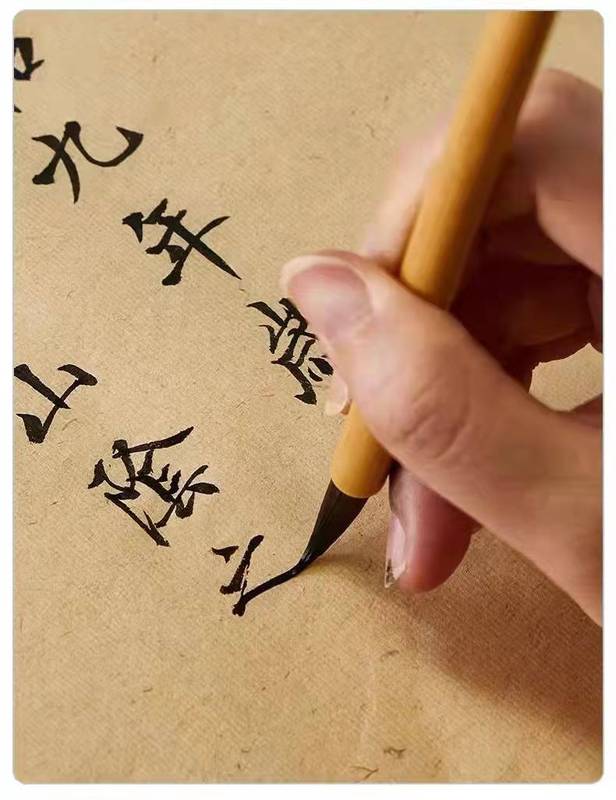 和九年歲
山陰之